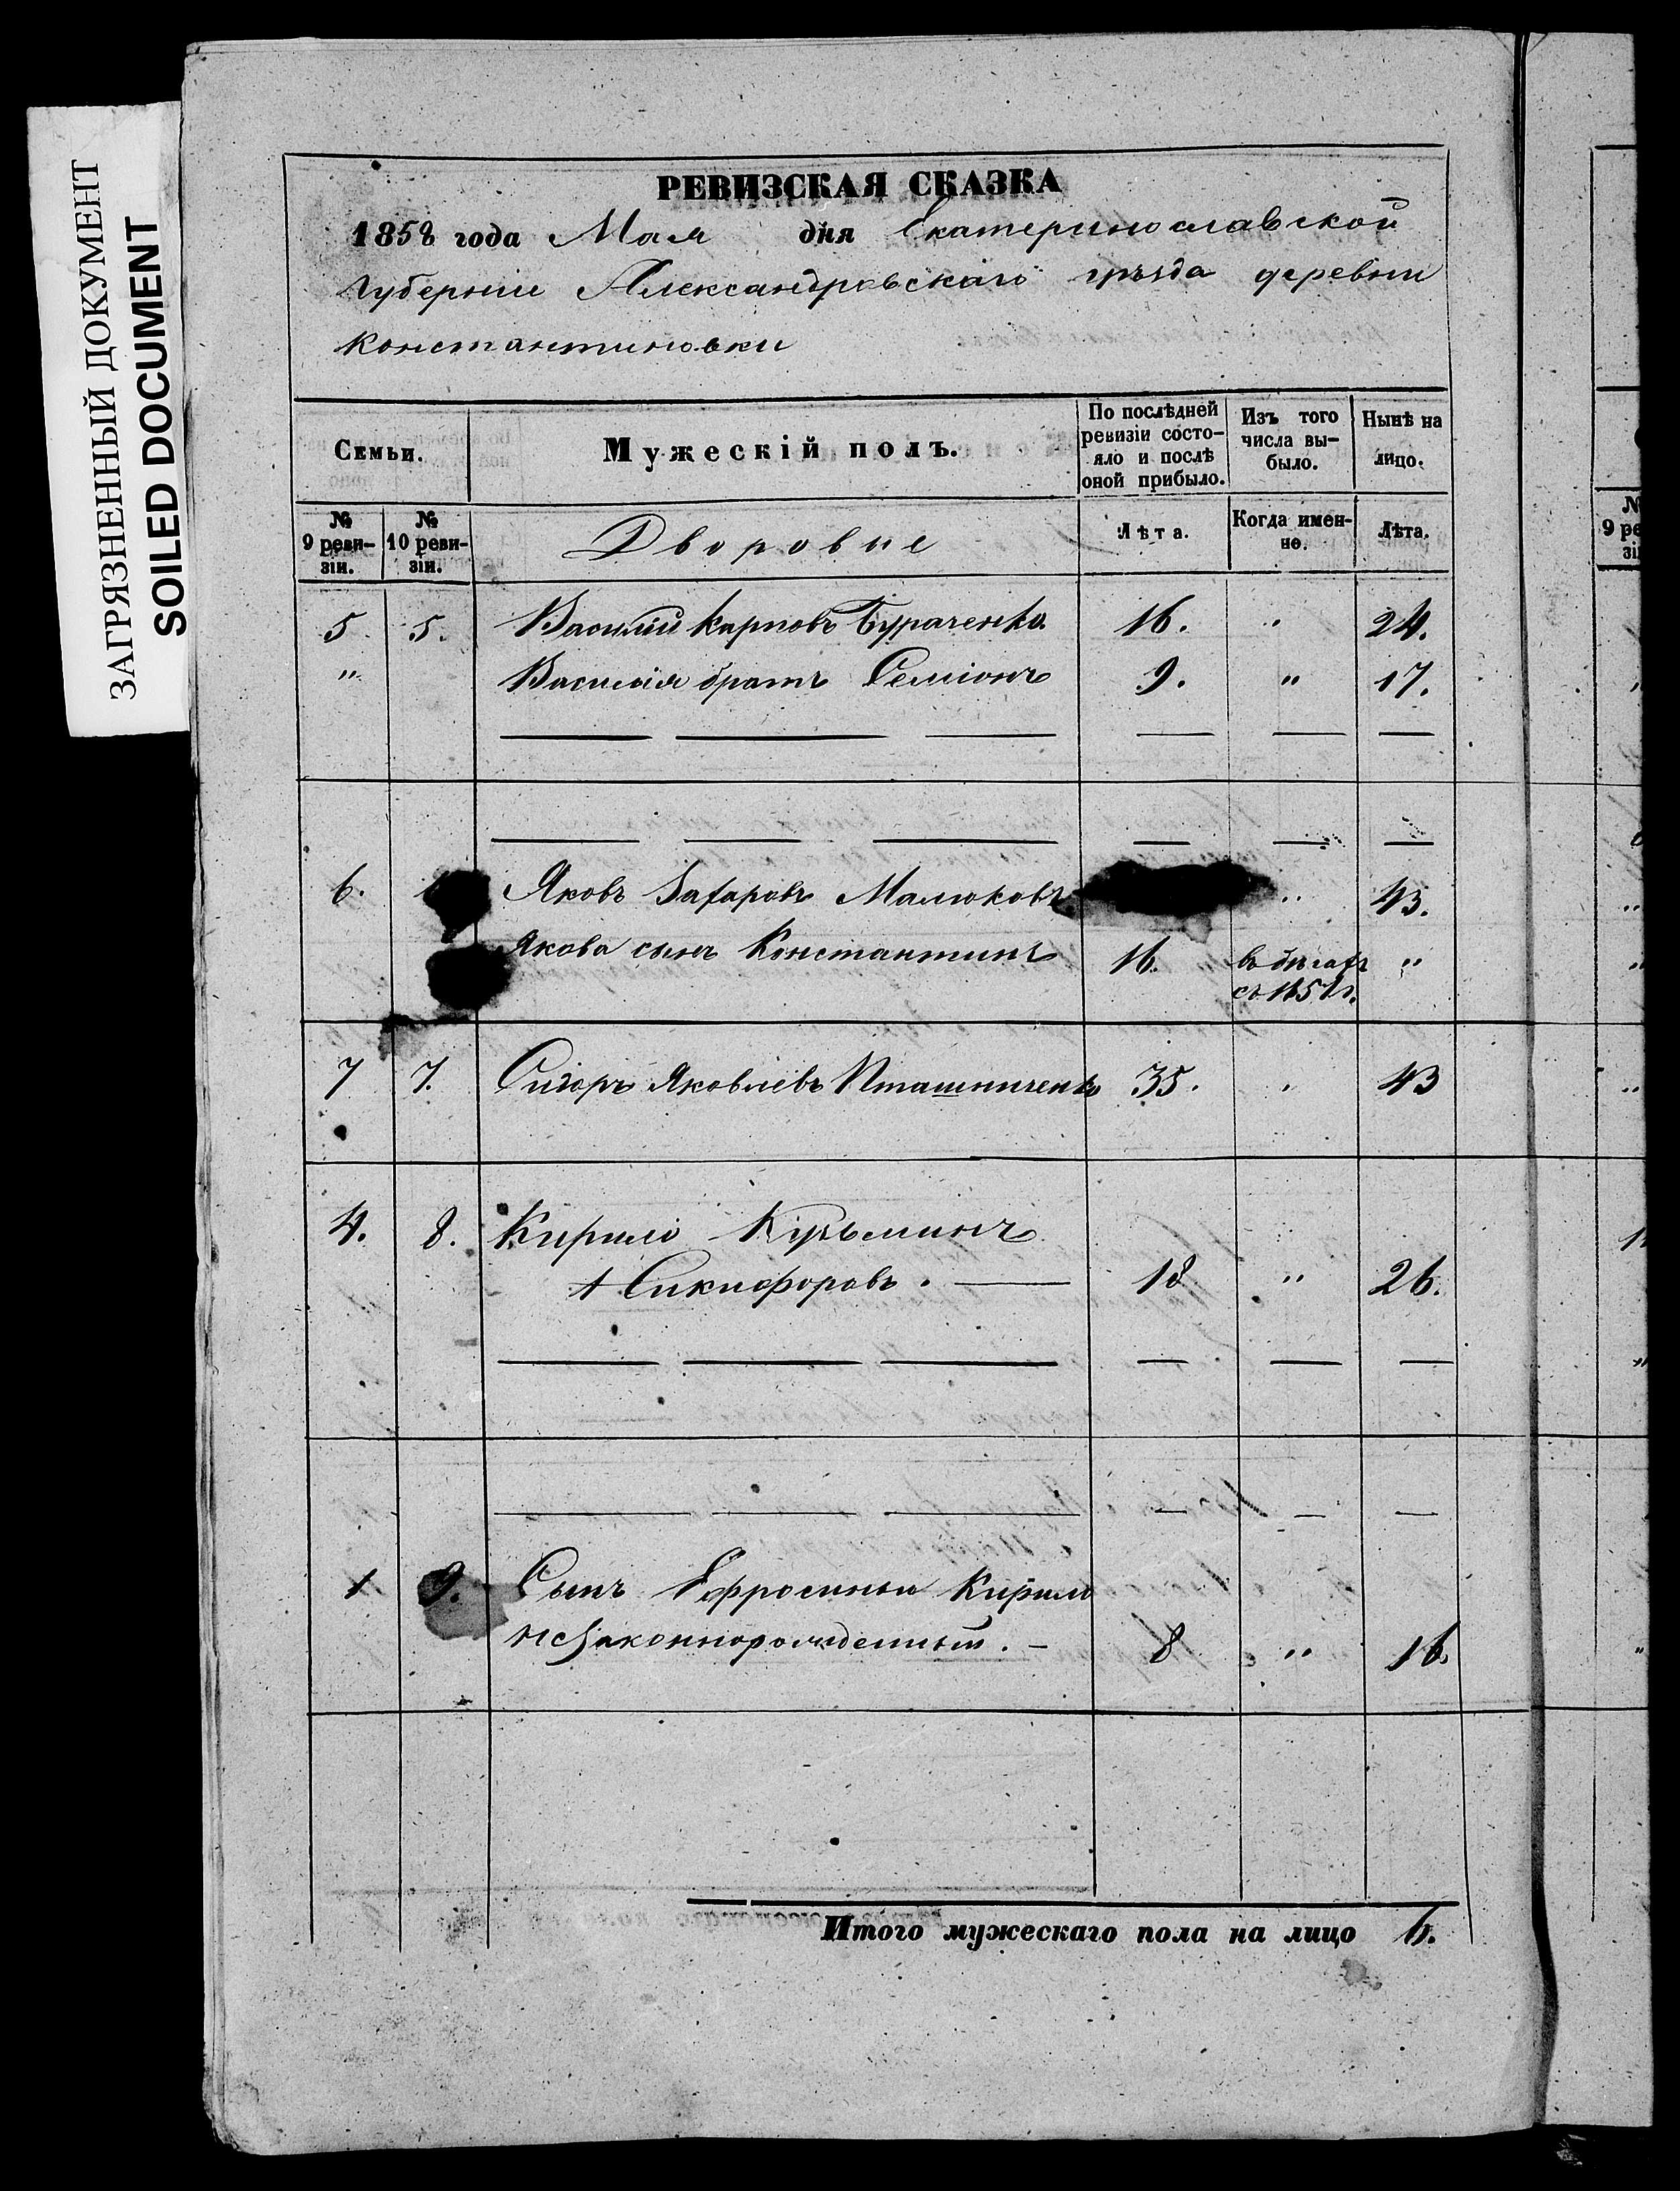 ЗАГРЯЗНЕННЫЙ ДОКУМЕНТ
SOILED DOCUMENT
РЕВИЗСКАЯ СКАЗКА
1858 года Мая дня Екатеринославской
губерніи Александровскаго уѣзда деревни
Константиновки
Семьи.
Мужескій полъ.
По послѣдней ревизіи состо-
яло и послѣ
оной прибыло.
Изъ того
числа вы-
было.
Нынѣ на
лицо.
№
9 реви-
зіи.
№
10 реви-
зіи.
Дворовые
Лѣта.
Когда имен-
но.
Лѣта.
5. 5. Василій Карповъ Бураченко 16. " 24.
" Василія братъ Семіонъ 9. " 17.
6. Яковъ Захаровъ Малюковъ " 43.
Якова сынъ Константинъ 16. въ бѣгахъ "
съ 1851 г.
7 7. Яковлевъ Пташниченко 35. " 43
4. 8. Кирило Кузьминъ
Никифоровъ. 18 " 26.
1 9. Сынъ Ефросиньи Кирило
незаконнорожденный. 8 " 16.
Итого мужескаго пола на лицо 6.
№
9 ре
зі